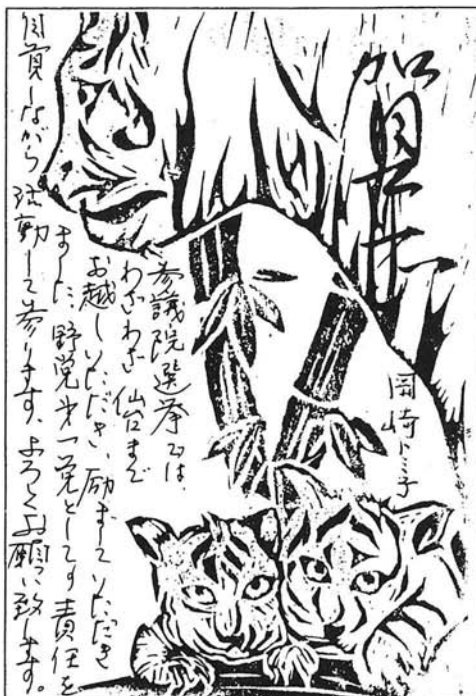 賀正
岡崎トミ子
参議院選挙では
わざわざ仙台まで
お越しいただき、励ましていただき
ました。野党第一党としての責任を
自負しながら活動して参ります。よろしくお願い致します。